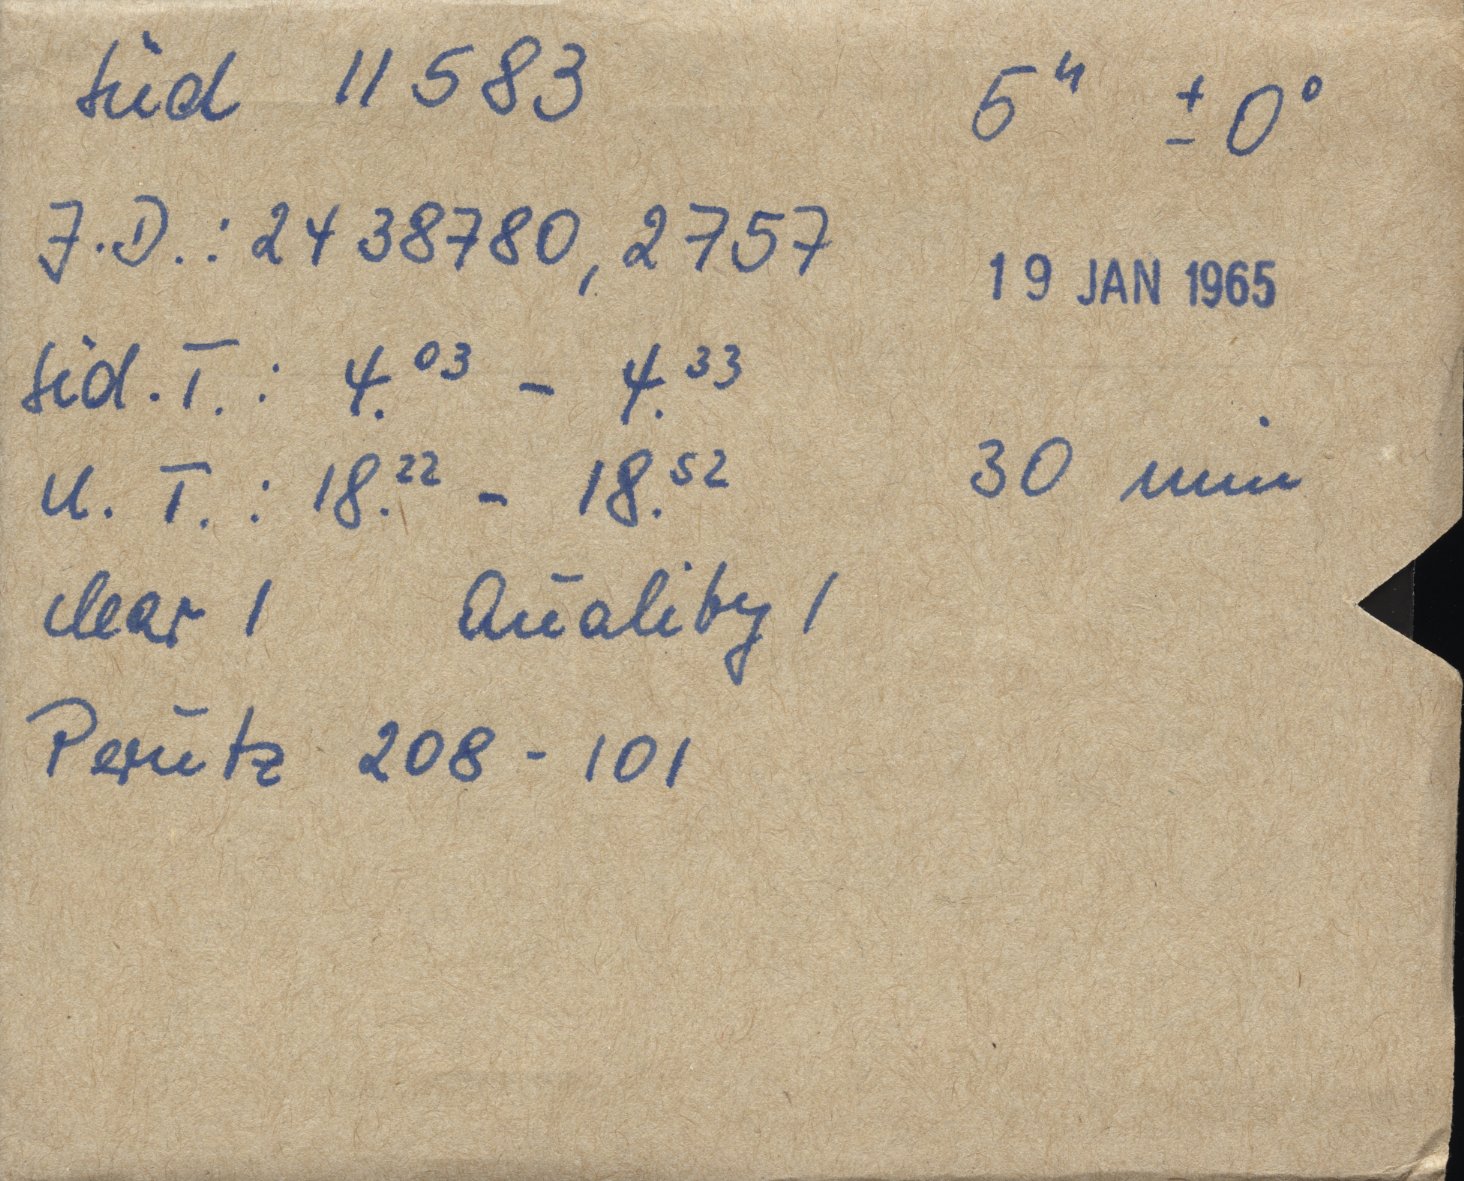 Süd 11583 5ʰ ±0°
J.D.: 2438780,2757
19 JAN 1965
Sid. T.: 4.⁰³ - 4.³³
U. T.: 18.²² - 18.⁵² 30 min
clear 1 Quality 1
Perutz 208 - 101